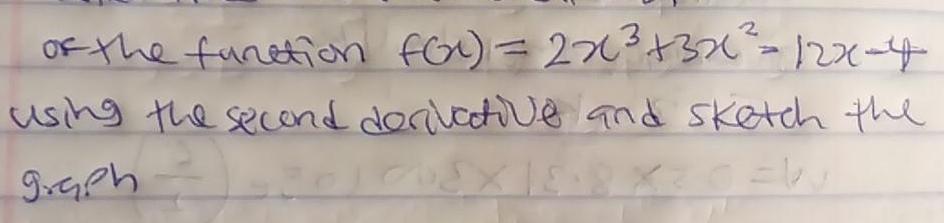 of the function f(x) = 2x³+3x²-12x-4
using the second derivative and sketch the
graph